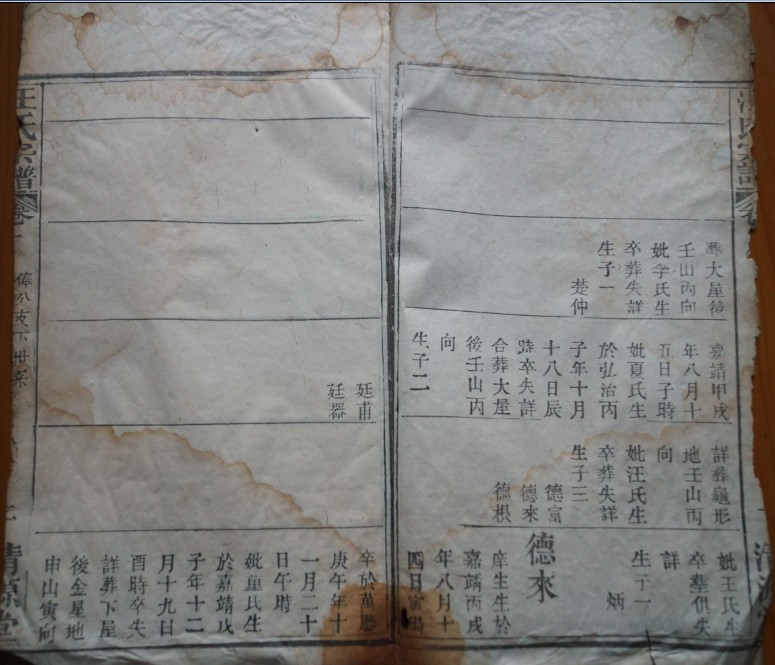 葬大屋後
壬山丙向
妣李氏生
卒葬失詳
生子一
楚仲
嘉靖甲戌
年八月十
五日子時
妣夏氏生
於弘治丙
子年十月
十八日辰
時卒失詳
合葬大屋
後壬山丙
向
生子二
廷甫
廷器
詳葬龜形
地壬山丙
向
妣汪氏生
卒葬失詳
生子三
德富
德來
德根
妣王氏生
卒塟俱失
詳
生子一
炳
德來
庠生生於
嘉靖丙戌
年八月十
四日寅時
卒於萬曆
庚午年十
一月二十
日午時
妣童氏生
於嘉靖戊
子年十二
月十九日
酉時卒失
詳葬下屋
後金星地
申山寅向
汪氏宗譜
卷
清源堂